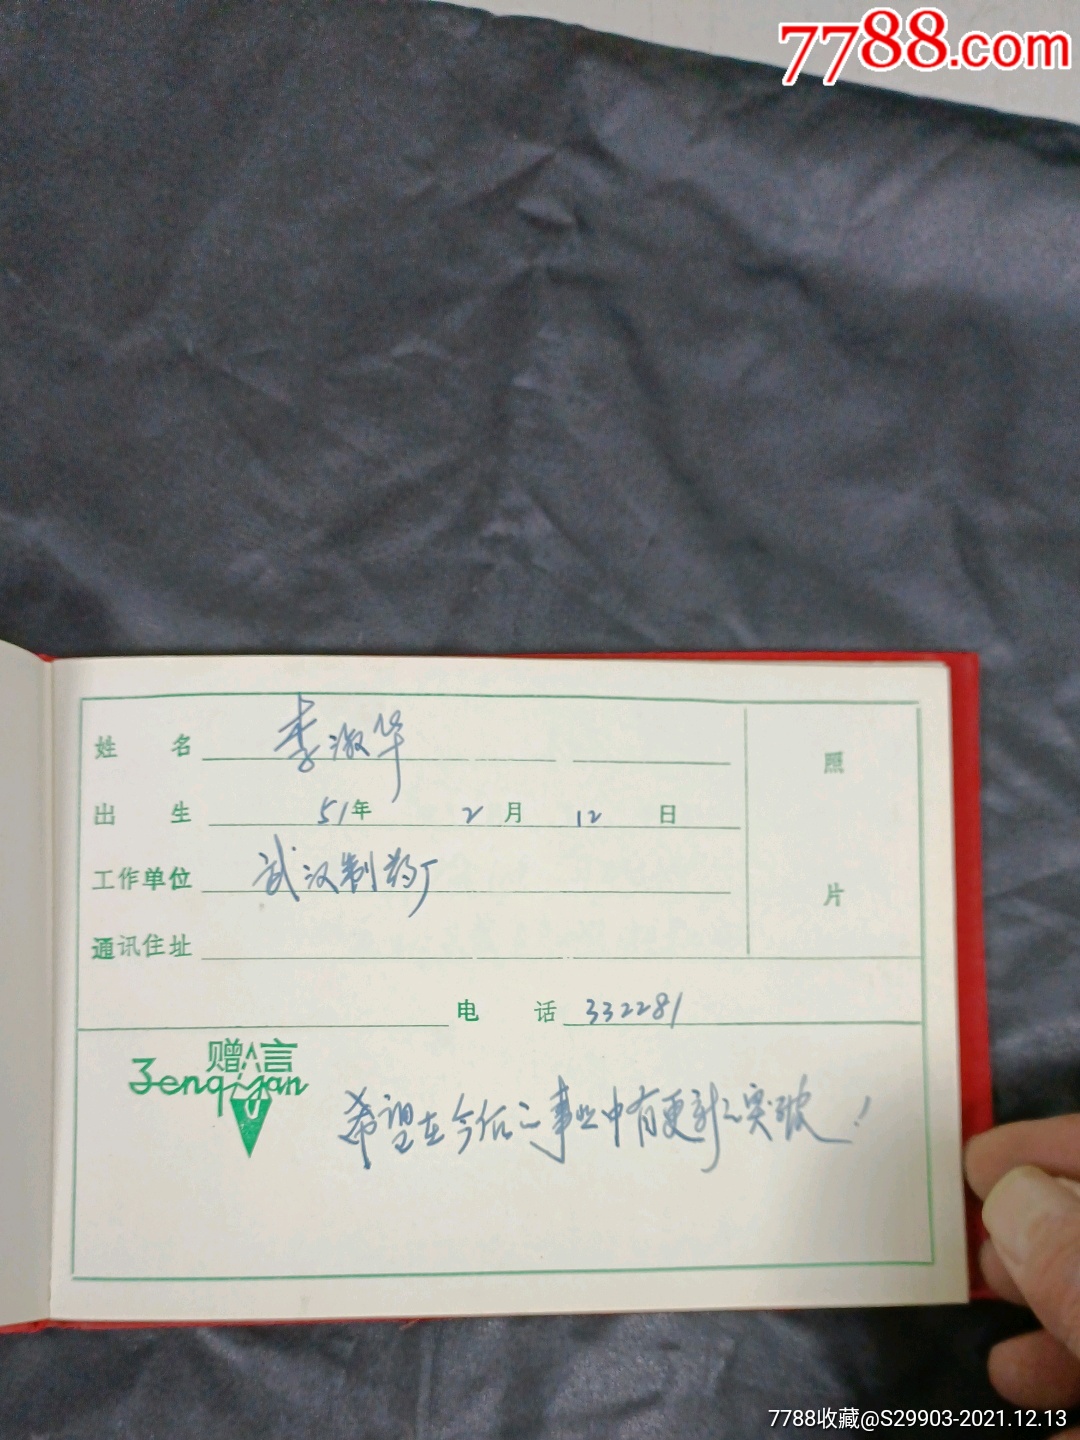 7788.com
姓 名 李淑华
照
出 生 51年 2月 12日
工作单位 武汉制药厂
片
通讯住址
电 话 332281
赠言
Zengyan
希望在今后之事业中有更新之突破！
7788收藏@S29903-2021.12.13